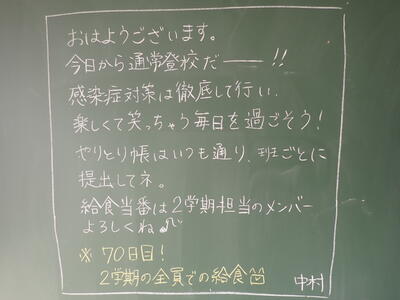 おはようございます。
今日から通常登校だ――!!
感染症対策は徹底して行い、
楽しくて笑っちゃう毎日を過ごそう!
やりとり帳はいつも通り、班ごとに
提出してネ。
給食当番は2学期担当のメンバー
よろしくね♪
※ 70日目!
2学期の全員での給食
中村